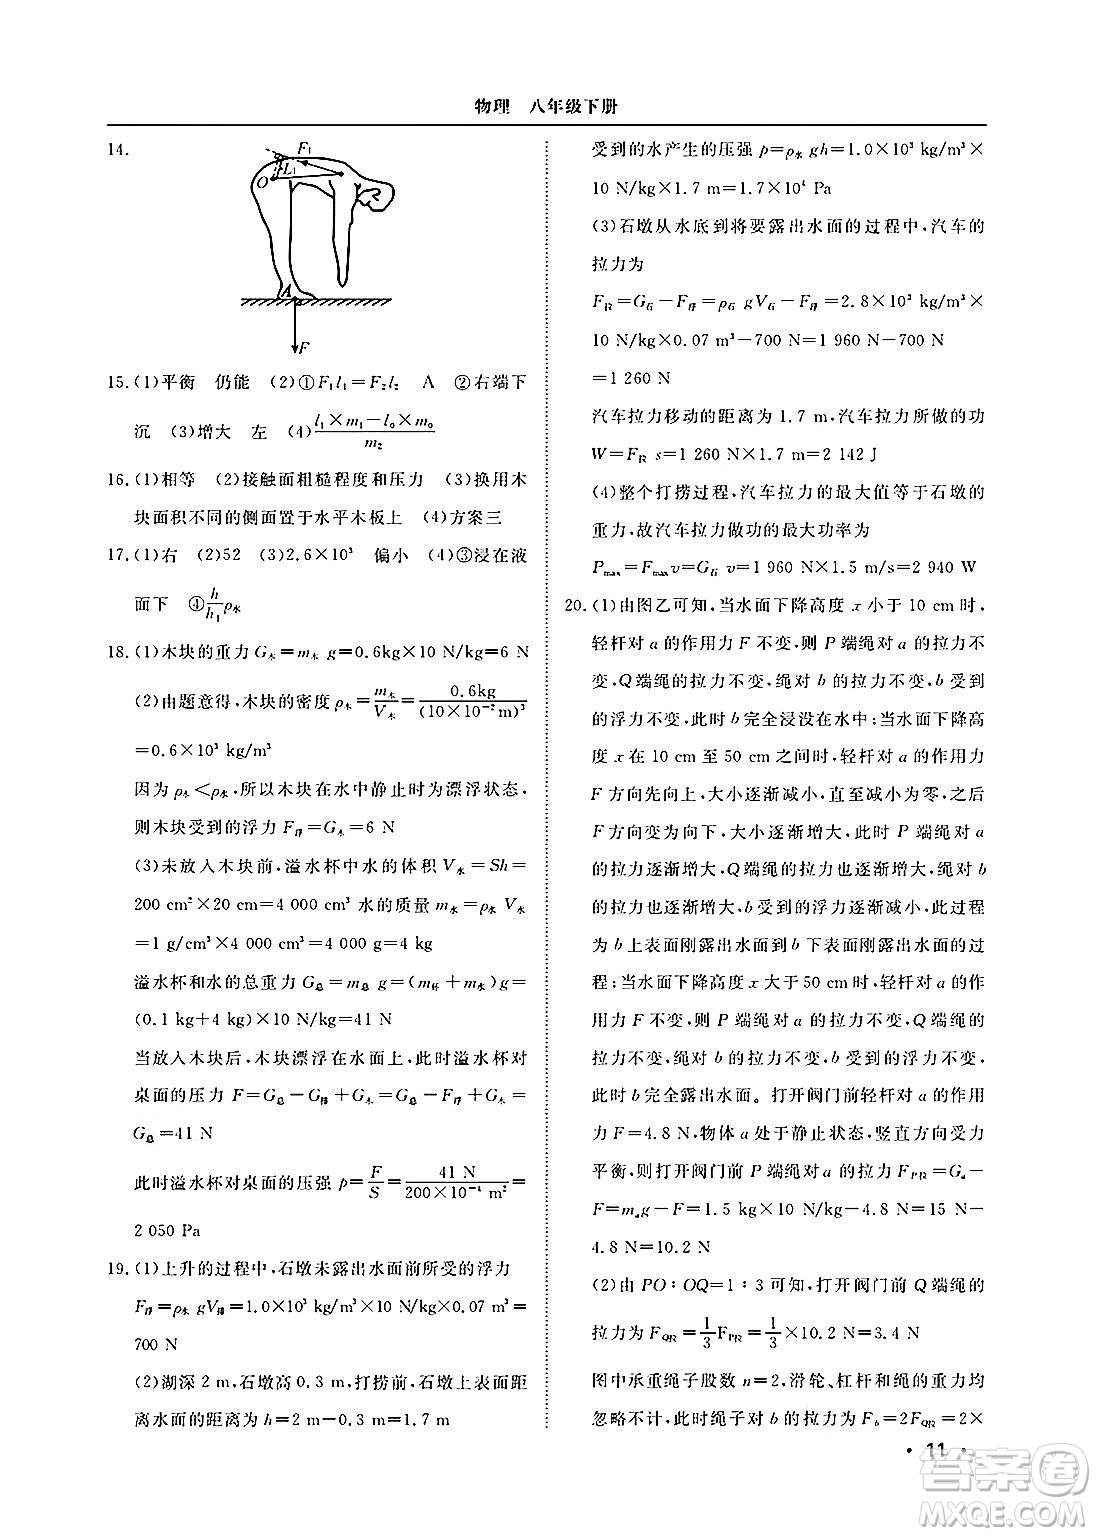 物理　八年级下册
14.
F₁
O
L₁
A
F
15.(1)平衡　仍能　(2)①F₁l₁=F₂l₂　A　②右端下
沉　(3)增大　左　(4)(l₁×m₁−l₀×m₀)/m₂
16.(1)相等　(2)接触面粗糙程度和压力　(3)换用木
块面积不同的侧面置于水平木板上　(4)方案三
17.(1)右　(2)52　(3)2.6×10³　偏小　(4)③浸在液
面下　④(h/h₁)ρ水
18.(1)木块的重力 G木=m木 g=0.6kg×10 N/kg=6 N
(2)由题意得,木块的密度 ρ木=m木/V木=0.6kg/(10×10⁻²m)³
=0.6×10³ kg/m³
因为 ρ木<ρ水,所以木块在水中静止时为漂浮状态,
则木块受到的浮力 F浮=G木=6 N
(3)未放入木块前,溢水杯中水的体积 V水=Sh=
200 cm²×20 cm=4 000 cm³ 水的质量 m水=ρ水 V水
=1 g/cm³×4 000 cm³=4 000 g=4 kg
溢水杯和水的总重力 G总=m总 g=(m杯+m水)g=
(0.1 kg+4 kg)×10 N/kg=41 N
当放入木块后,木块漂浮在水面上,此时溢水杯对
桌面的压力 F=G总−G排+G木=G总−F浮+G木=
G总=41 N
此时溢水杯对桌面的压强 p=F/S=41 N/(200×10⁻⁴ m²)=
2 050 Pa
19.(1)上升的过程中,石墩未露出水面前所受的浮力
F浮=ρ水 gV排=1.0×10³ kg/m³×10 N/kg×0.07 m³=
700 N
(2)湖深 2 m,石墩高 0.3 m,打捞前,石墩上表面距
离水面的距离为 h=2 m−0.3 m=1.7 m
受到的水产生的压强 p=ρ水 gh=1.0×10³ kg/m³×
10 N/kg×1.7 m=1.7×10⁴ Pa
(3)石墩从水底到将要露出水面的过程中,汽车的
拉力为
F拉=G石−F浮=ρ石 gV石−F浮=2.8×10³ kg/m³×
10 N/kg×0.07 m³−700 N=1 960 N−700 N
=1 260 N
汽车拉力移动的距离为 1.7 m,汽车拉力所做的功
W=F拉 s=1 260 N×1.7 m=2 142 J
(4)整个打捞过程,汽车拉力的最大值等于石墩的
重力,故汽车拉力做功的最大功率为
Pmax=Fmaxv=G石 v=1 960 N×1.5 m/s=2 940 W
20.(1)由图乙可知,当水面下降高度 x 小于 10 cm 时,
轻杆对 a 的作用力 F 不变,则 P 端绳对 a 的拉力不
变,Q端绳的拉力不变,绳对 b 的拉力不变,b 受到
的浮力不变,此时 b 完全浸没在水中;当水面下降高
度 x 在 10 cm 至 50 cm 之间时,轻杆对 a 的作用力
F 方向先向上,大小逐渐减小,当减小为零,之后力
F 方向变为向下,大小逐渐增大,此时 P 端绳对 a
的拉力逐渐增大,Q端绳的拉力也逐渐增大,绳对 b
的拉力也逐渐增大,b 受到的浮力逐渐减小,此过程
为 b 上表面刚露出水面到 b 下表面刚露出水面的过
程;当水面下降高度 x 大于 50 cm 时,轻杆对 a 的作
用力 F 不变,则 P 端绳对 a 的拉力不变,Q端绳的
拉力不变,绳对 b 的拉力不变,b 受到的浮力不变,
此时 b 完全露出水面。打开阀门前轻杆对 a 的作用
力 F=4.8 N,物体 a 处于静止状态,竖直方向受力
平衡,则打开阀门前 P 端绳对 a 的拉力 FP拉=Ga−
F=mag−F=1.5 kg×10 N/kg−4.8 N=15 N−
4.8 N=10.2 N
(2)由 PO∶OQ=1∶3 可知,打开阀门前 Q 端绳的
拉力为 FQ拉=1/3FP拉=1/3×10.2 N=3.4 N
图中承重绳子股数 n=2,滑轮、杠杆和绳的重力均
忽略不计,此时绳子对 b 的拉力为 Fb=2FQ拉=2×
· 11 ·
答案圈
MXQE.COM